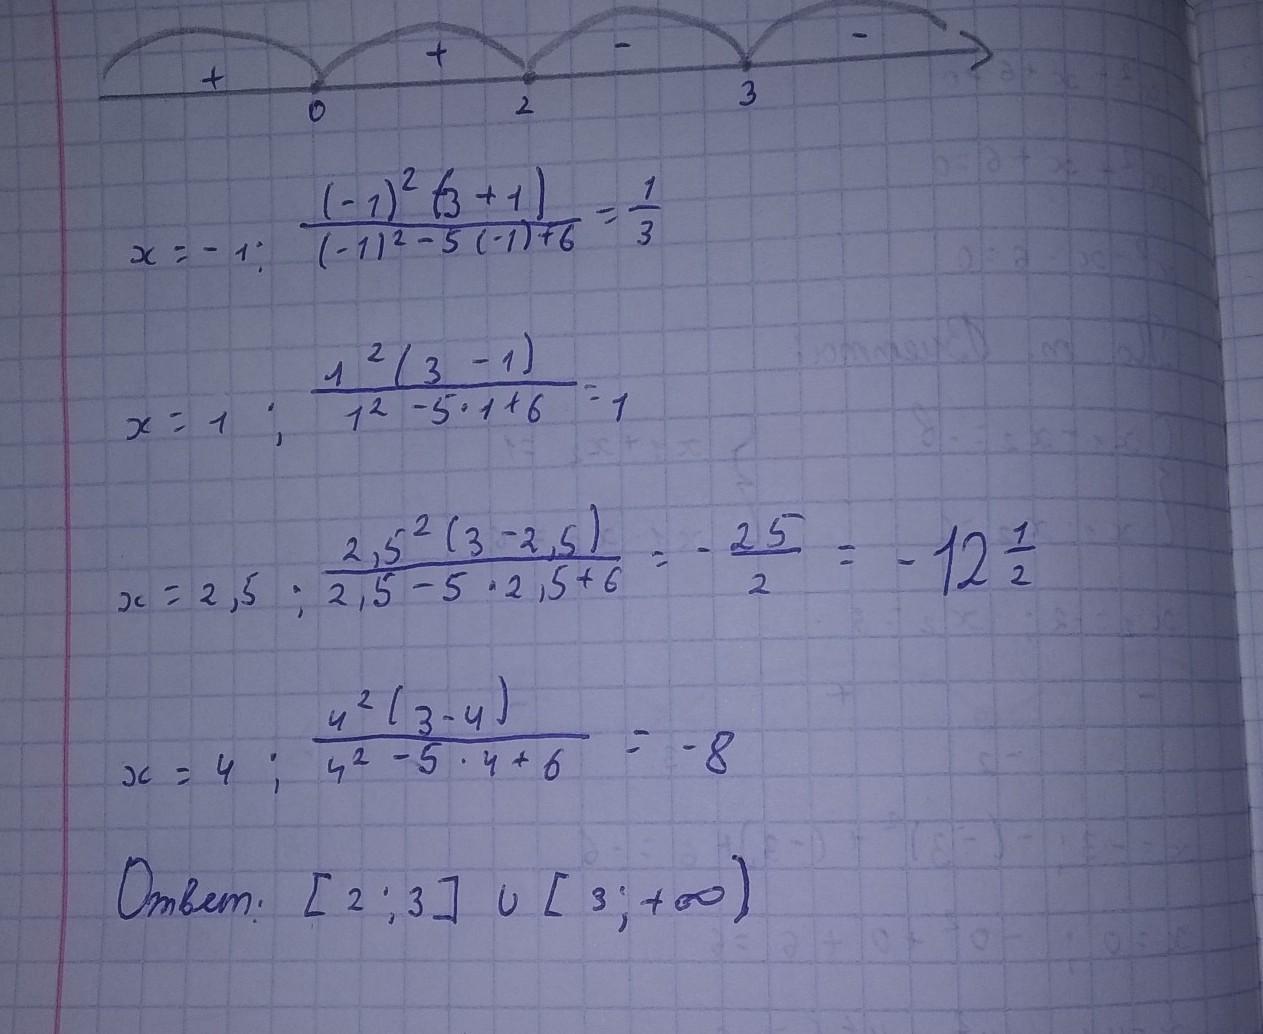 + + - -
0 2 3
x = -1; ((-1)² (3 + 1))/((-1)² - 5 (-1) + 6) = 1/3
x = 1; (1² (3 - 1))/(1² - 5·1 + 6) = 1
x = 2,5; (2,5² (3 - 2,5))/(2,5 - 5·2,5 + 6) = - 25/2 = - 12 1/2
x = 4; (4² (3 - 4))/(4² - 5·4 + 6) = -8
Ответ: [2; 3] ∪ [3; +∞)